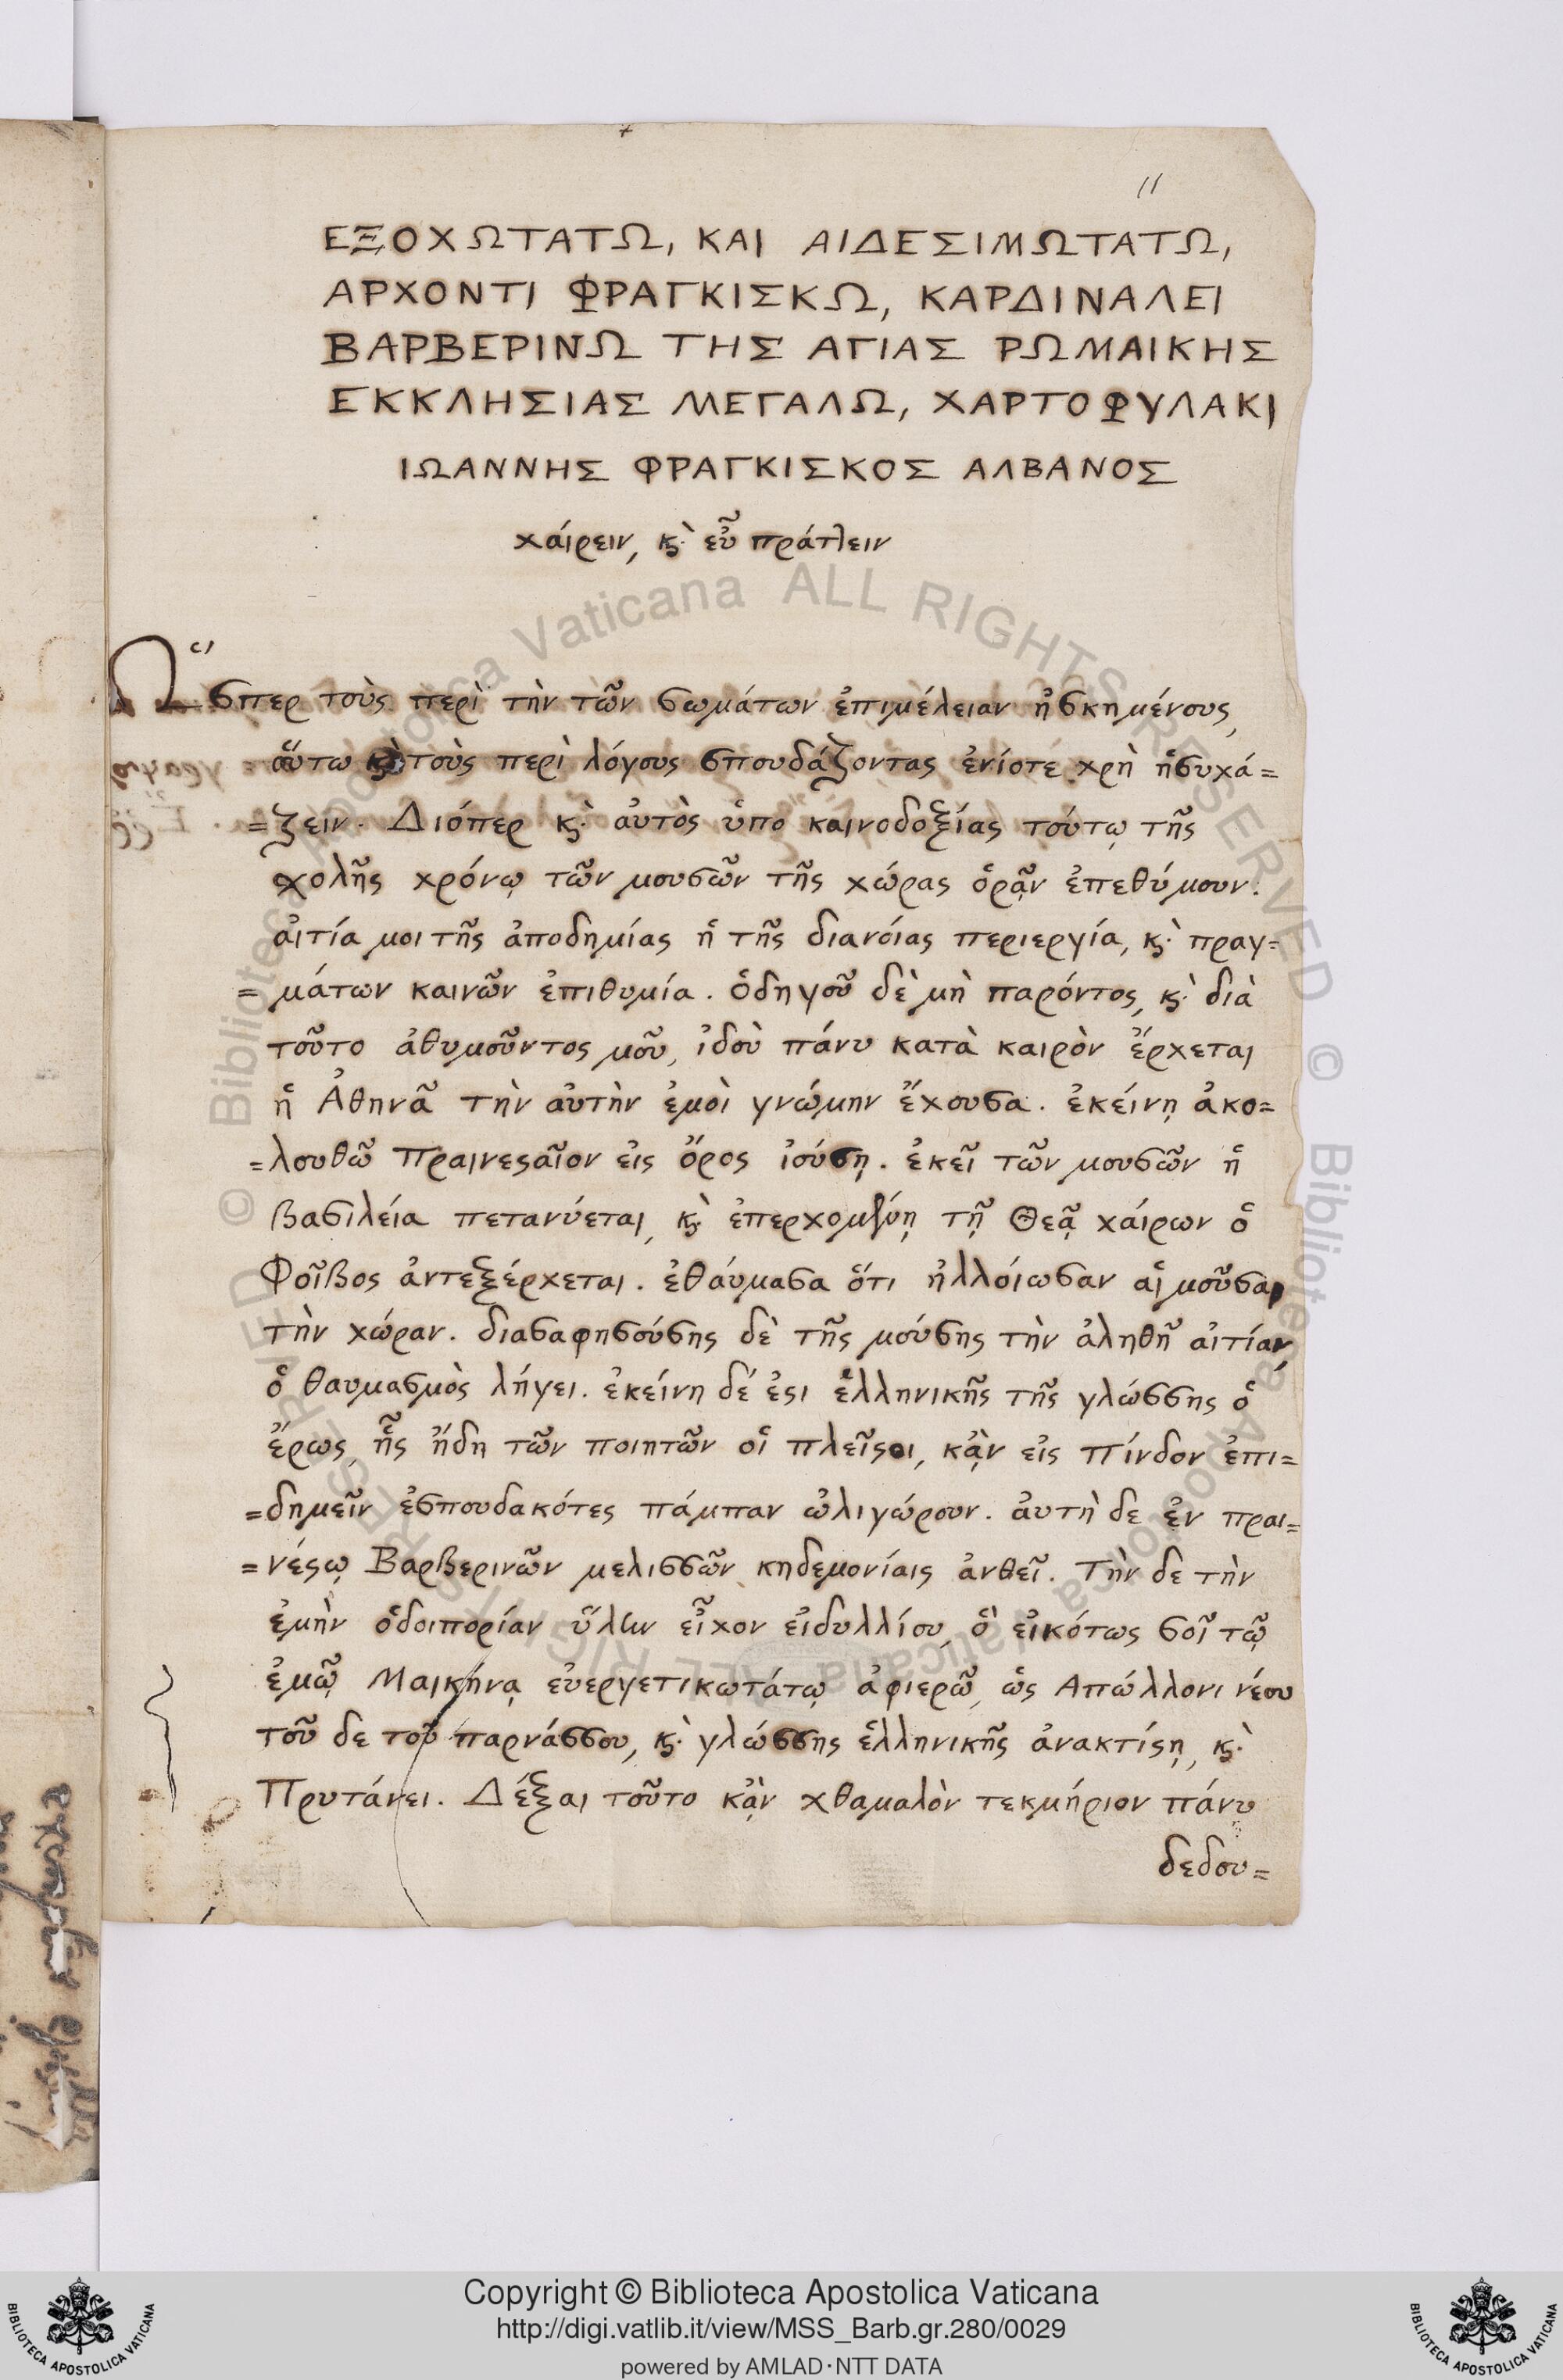 11
ΕΞΟΧΩΤΑΤΩ, ΚΑΙ ΑΙΔΕΣΙΜΩΤΑΤΩ,
ΑΡΧΟΝΤΙ ΦΡΑΓΚΙΣΚΩ, ΚΑΡΔΙΝΑΛΕΙ
ΒΑΡΒΕΡΙΝΩ ΤΗΣ ΑΓΙΑΣ ΡΩΜΑΙΚΗΣ
ΕΚΚΛΗΣΙΑΣ ΜΕΓΑΛΩ, ΧΑΡΤΟΦΥΛΑΚΙ
ΙΩΑΝΝΗΣ ΦΡΑΓΚΙΣΚΟΣ ΑΛΒΑΝΟΣ
χάιρειν, ϗ̀ εὖ πράττειν
Ὥσπερ τοὺς περὶ τὴν τῶν σωμάτων ἐπιμέλειαν ἠσκημένους,
οὕτω ϗ̀ τοὺς περὶ λόγους σπουδάζοντας ἐνίοτε χρὴ ἡσυχά=
=ζειν. Διόπερ ϗ̀ ἀυτὸς ὑπο καινοδοξίας τούτῳ τῆς
σχολῆς χρόνῳ τῶν μουσῶν τῆς χώρας ὁρᾷν ἐπεθύμουν.
ἀιτία μοι τῆς ἀποδημίας ἡ τῆς διανοίας περιεργία, ϗ̀ πραγ=
=μάτων καινῶν ἐπιθυμία. ὁδηγοῦ δὲ μὴ παρόντος, ϗ̀ διὰ
τοῦτο ἀθυμοῦντος μοῦ, ἰδοὺ πάνυ κατὰ καιρὸν ἔρχεται
ἡ Ἀθηνᾶ τὴν ἀυτὴν ἐμοὶ γνώμην ἔχουσα. ἐκείνῃ ἀκο=
=λουθῶ Πραινεϛαῖον εἰς ὄρος ἰούσῃ. ἐκεῖ τῶν μουσῶν ἡ
βασιλεία πετανύεται, ϗ̀ ἐπερχομένῃ τῇ Θεᾷ χάιρων ὁ
Φοῖβος ἀντεξέρχεται. ἐθάυμασα ὅτι ἠλλόιωσαν αἱ μοῦσαι
τὴν χώραν. διασαφησούσης δὲ τῆς μούσης τὴν ἀληθῆ ἀιτίαν,
ὁ θαυμασμὸς λήγει. ἐκείνη δέ ἐϛι ἑλληνικῆς τῆς γλώσσης ὁ
ἔρως, ἧς ἤδη τῶν ποιητῶν οἱ πλεῖϛοι, κᾂν εἰς Πίνδον ἐπι=
=δημεῖν ἐσπουδακότες πάμπαν ὠλιγώρουν. ἀυτὴ δε ἐν πραι=
=νέϛῳ Βαρβερινῶν μελισσῶν κηδεμονίαις ἀνθεῖ. Τὴν δε τὴν
ἐμὴν ὁδοιπορίαν ὕλην εἶχον εἰδυλλίου, ὃ εἰκότως σοῖ τῷ
ἐμῷ Μαικήνᾳ ἐυεργετικωτάτῳ ἀφιερῶ, ὡς Απώλλονι νέου
τοῦ δε τοῦ παρνάσσου, ϗ̀ γλώσσης ἑλληνικῆς ἀνακτίϛῃ, ϗ̀
Πρυτάνει. Δέξαι τοῦτο κᾂν χθαμαλὸν τεκμήριον πάνυ
δεδου=
Copyright © Biblioteca Apostolica Vaticana
http://digi.vatlib.it/view/MSS_Barb.gr.280/0029
powered by AMLAD·NTT DATA
BIBLIOTECA APOSTOLICA VATICANA
BIBLIOTECA APOSTOLICA VATICANA
© Biblioteca Apostolica Vaticana ALL RIGHTS RESERVED
© Biblioteca Apostolica Vaticana ALL RIGHTS RESERVED